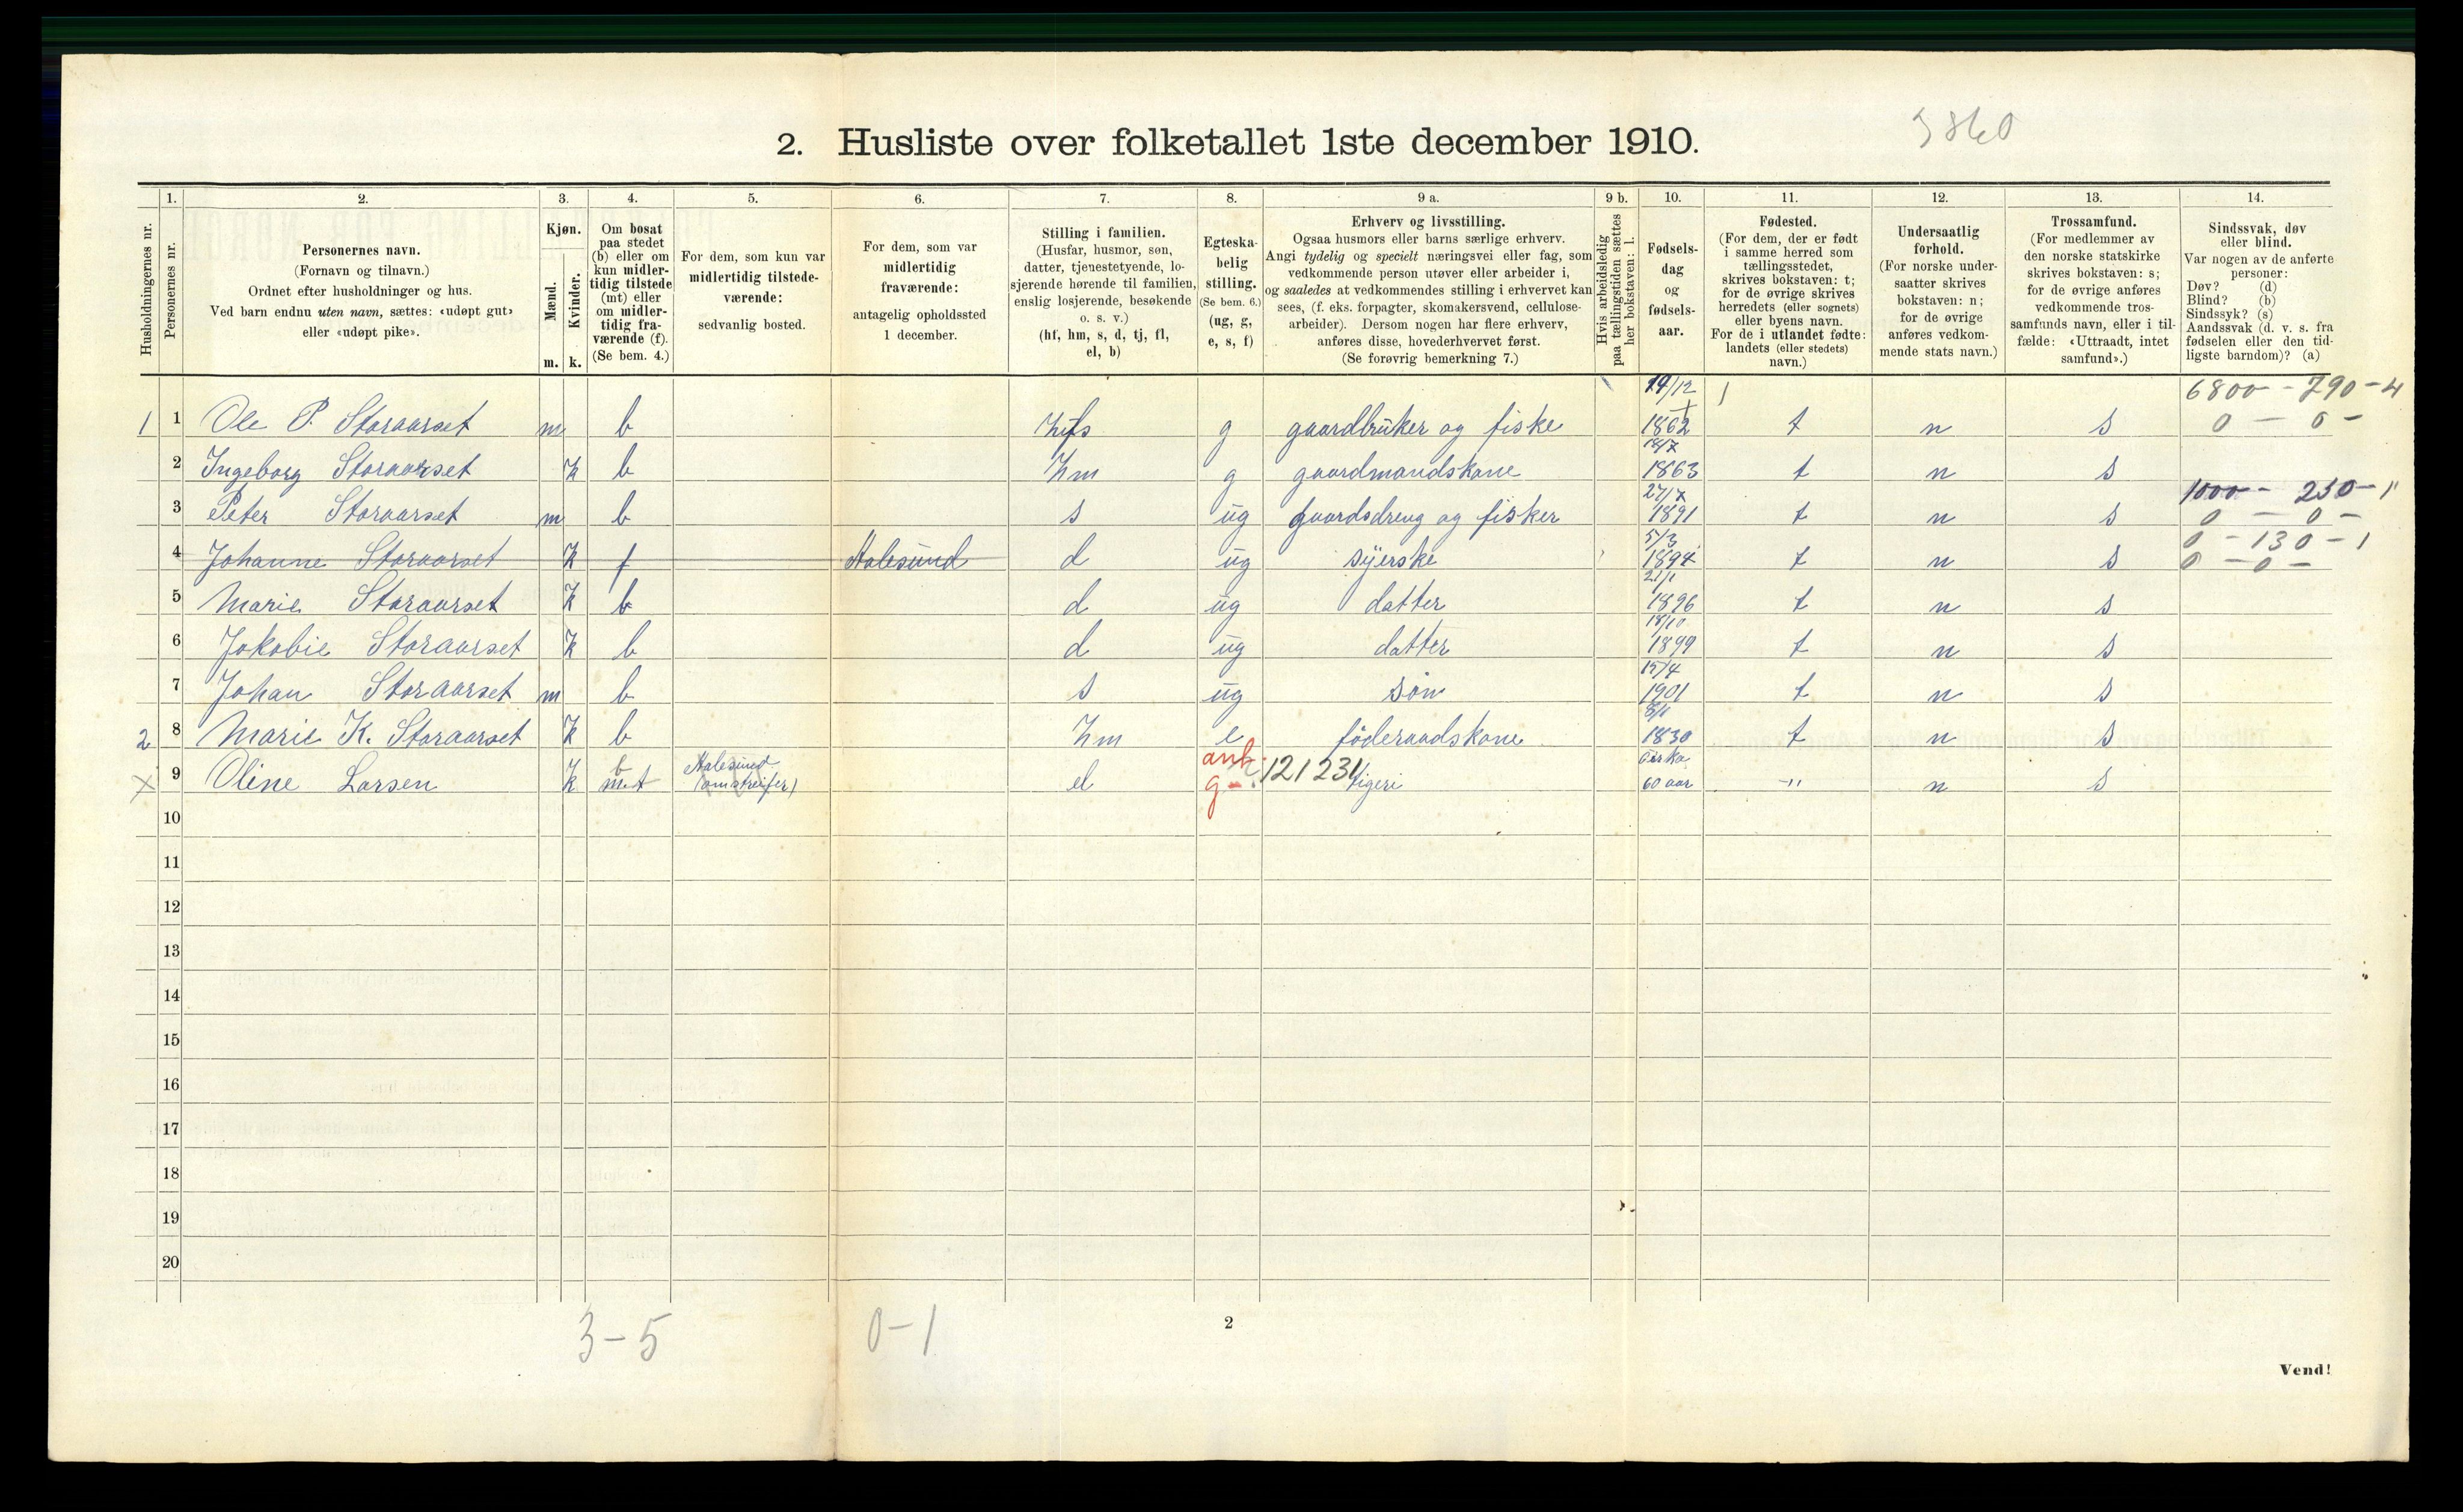 3860
2. Husliste over folketallet 1ste december 1910.
Husholdningernes nr.
1.
Personernes nr.
2.
Personernes navn.
(Fornavn og tilnavn.)
Ordnet efter husholdninger og hus.
Ved barn endnu uten navn, sættes: «udøpt gut»
eller «udøpt pike».
3.
Kjøn.
Mænd.
Kvinder.
m. k.
4.
Om bosat
paa stedet
(b) eller om
kun midler-
tidig tilstede
(mt) eller
om midler-
tidig fra-
værende (f).
(Se bem. 4.)
5.
For dem, som kun var
midlertidig tilstede-
værende:
sedvanlig bosted.
6.
For dem, som var
midlertidig
fraværende:
antagelig opholdssted
1 december.
7.
Stilling i familien.
(Husfar, husmor, søn,
datter, tjenestetyende, lo-
sjerende hørende til familien,
enslig losjerende, besøkende
o. s. v.)
(hf, hm, s, d, tj, fl,
el, b)
8.
Egteska-
belig
stilling.
(Se bem. 6.)
(ug, g,
e, s, f)
9 a.
Erhverv og livsstilling.
Ogsaa husmors eller barns særlige erhverv.
Angi tydelig og specielt næringsvei eller fag, som
vedkommende person utøver eller arbeider i,
og saaledes at vedkommendes stilling i erhvervet kan
sees, (f. eks. forpagter, skomakersvend, cellulose-
arbeider). Dersom nogen har flere erhverv,
anføres disse, hovederhvervet først.
(Se forøvrig bemerkning 7.)
9 b.
Hvis arbeidsledig
paa tællingstiden sættes
her bokstaven: l.
10.
Fødsels-
dag
og
fødsels-
aar.
11.
Fødested.
(For dem, der er født
i samme herred som
tællingsstedet,
skrives bokstaven: t;
for de øvrige skrives
herredets (eller sognets)
eller byens navn.
For de i utlandet fødte:
landets (eller stedets)
navn.)
12.
Undersaatlig
forhold.
(For norske under-
saatter skrives
bokstaven: n;
for de øvrige
anføres vedkom-
mende stats navn.)
13.
Trossamfund.
(For medlemmer av
den norske statskirke
skrives bokstaven: s;
for de øvrige anføres
vedkommende tros-
samfunds navn, eller i til-
fælde: «Uttraadt, intet
samfund».)
14.
Sindssvak, døv
eller blind.
Var nogen av de anførte
personer:
Døv? (d)
Blind? (b)
Sindssyk? (s)
Aandssvak (d. v. s. fra
fødselen eller den tid-
ligste barndom)? (a)
1 1 Ole P. Storaarset m b g gaardbruker og fiske 14/12 1862 t n s 6800 - 790 - 4
0 - 0 -
2 Ingeborg Storaarset k b hm g gaardmandskone 1863 t n s
3 Peter Storaarset m b s ug gaardsdreng og fisker 27/7 1891 t n s 1000 - 230 - 1
0 - 0 -
4 Johanne Storaarset k f Aalesund d ug syerske 5/3 1894 t n s 0 - 130 - 1
0 - 0 -
5 Marie Storaarset k b d ug datter 21/1 1896 t n s
6 Jokobie Storaarset k b d ug datter 18/10 1899 t n s
7 Johan Storaarset m b s ug søn 15/4 1901 t n s
2 8 Marie K. Storaarset k b hm e föderaadskone 8/1 1830 t n s
x 9 Oline Larsen k b mt Aalesund (omstreifer) el ant. g 121231 tigeri Cirka 60 aar -" n s
10
11
12
13
14
15
16
17
18
19
20
3-5
0-1
2
Vend!